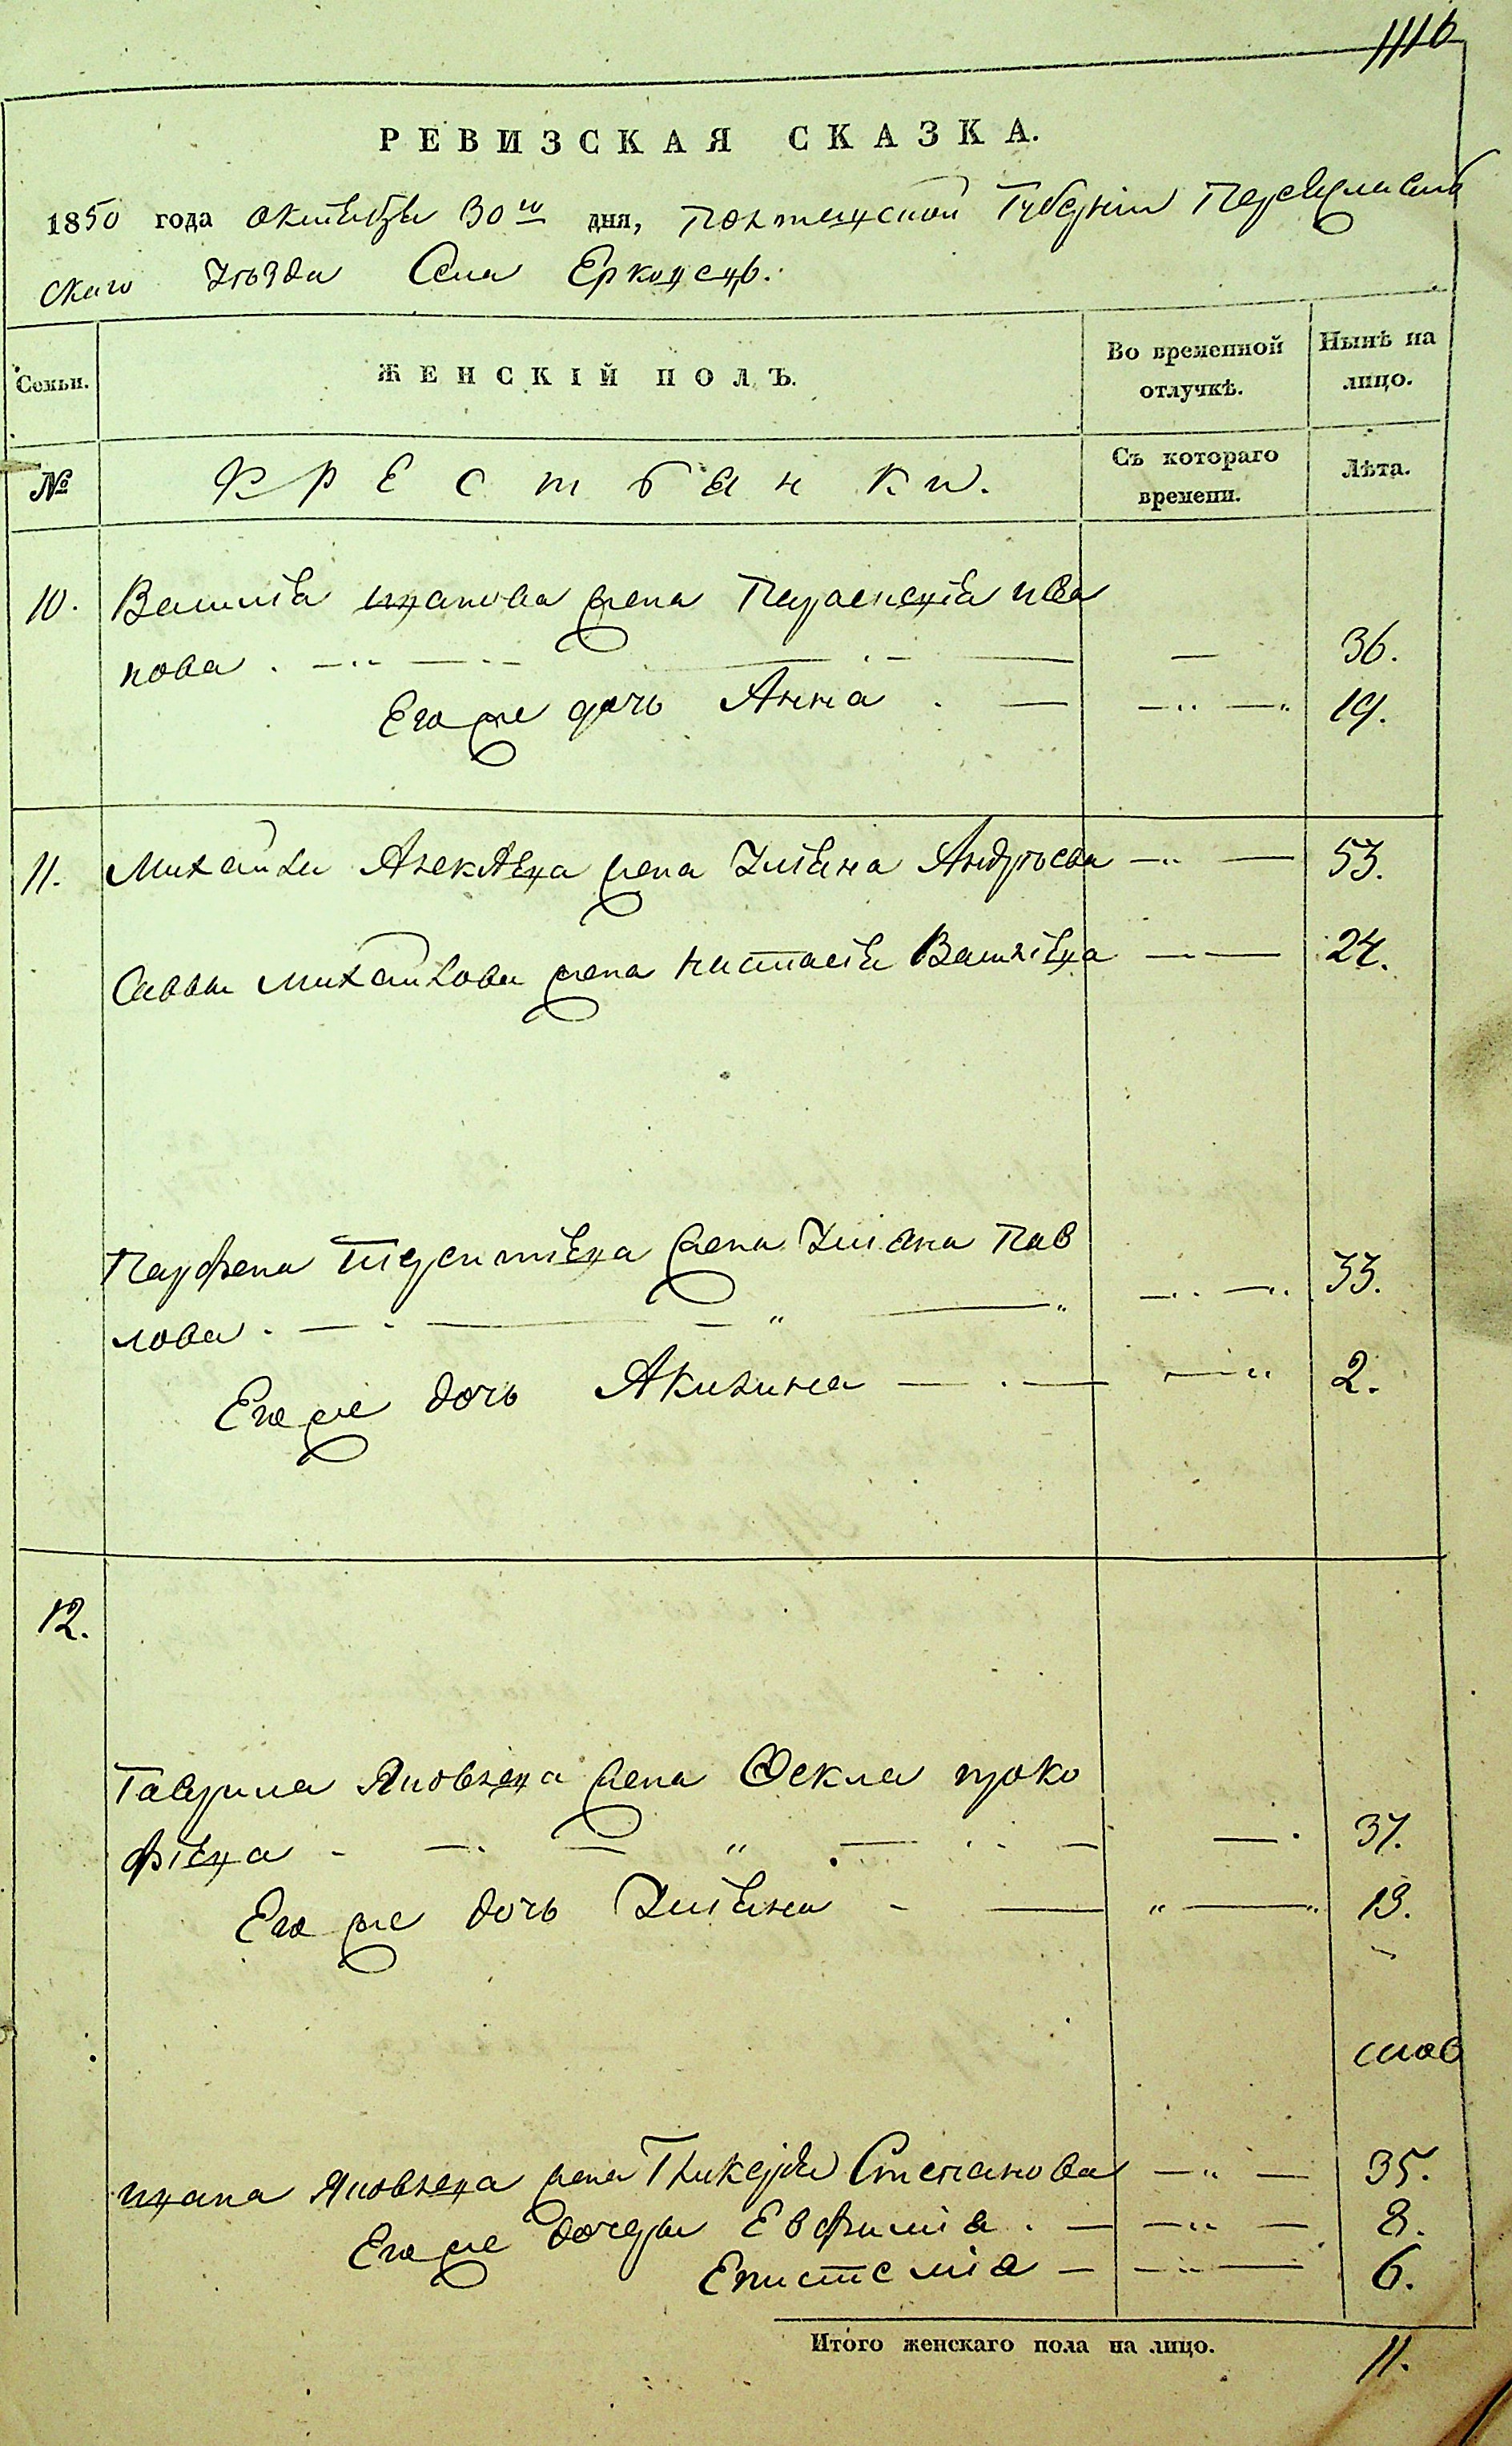 1116
РЕВИЗСКАЯ СКАЗКА.
1850 года октября 30го дня, Полтавской Губернии Переяслав
скаго Уѣзда Села Ерковецъ.
Семьи.
ЖЕНСКІЙ ПОЛЪ.
Во временной отлучкѣ.
Нынѣ на лицо.
№
Крестьянки.
Съ котораго времени.
Лѣта.
10. Василія Иванова жена Параскевія Ива
нова 36.
Его же дочь Анна 19.
11. Михайла Алексѣева жена Ульяна Андрѣева 53.
Саввы Михайлова жена Настасія Васильева 24.
Парфена Терентіева жена Ульяна Пав
лова 33.
Его же дочь Акилина 2.
12.
Гаврила Яковлева жена Ѳекла Проко
фіева 37.
Его же дочь Ульяна 13.
Ивана Яковлева жена Гликерія Степанова 35.
Его же дочери Евфимія 8.
Епистемія 6.
Итого женскаго пола на лицо. 11.